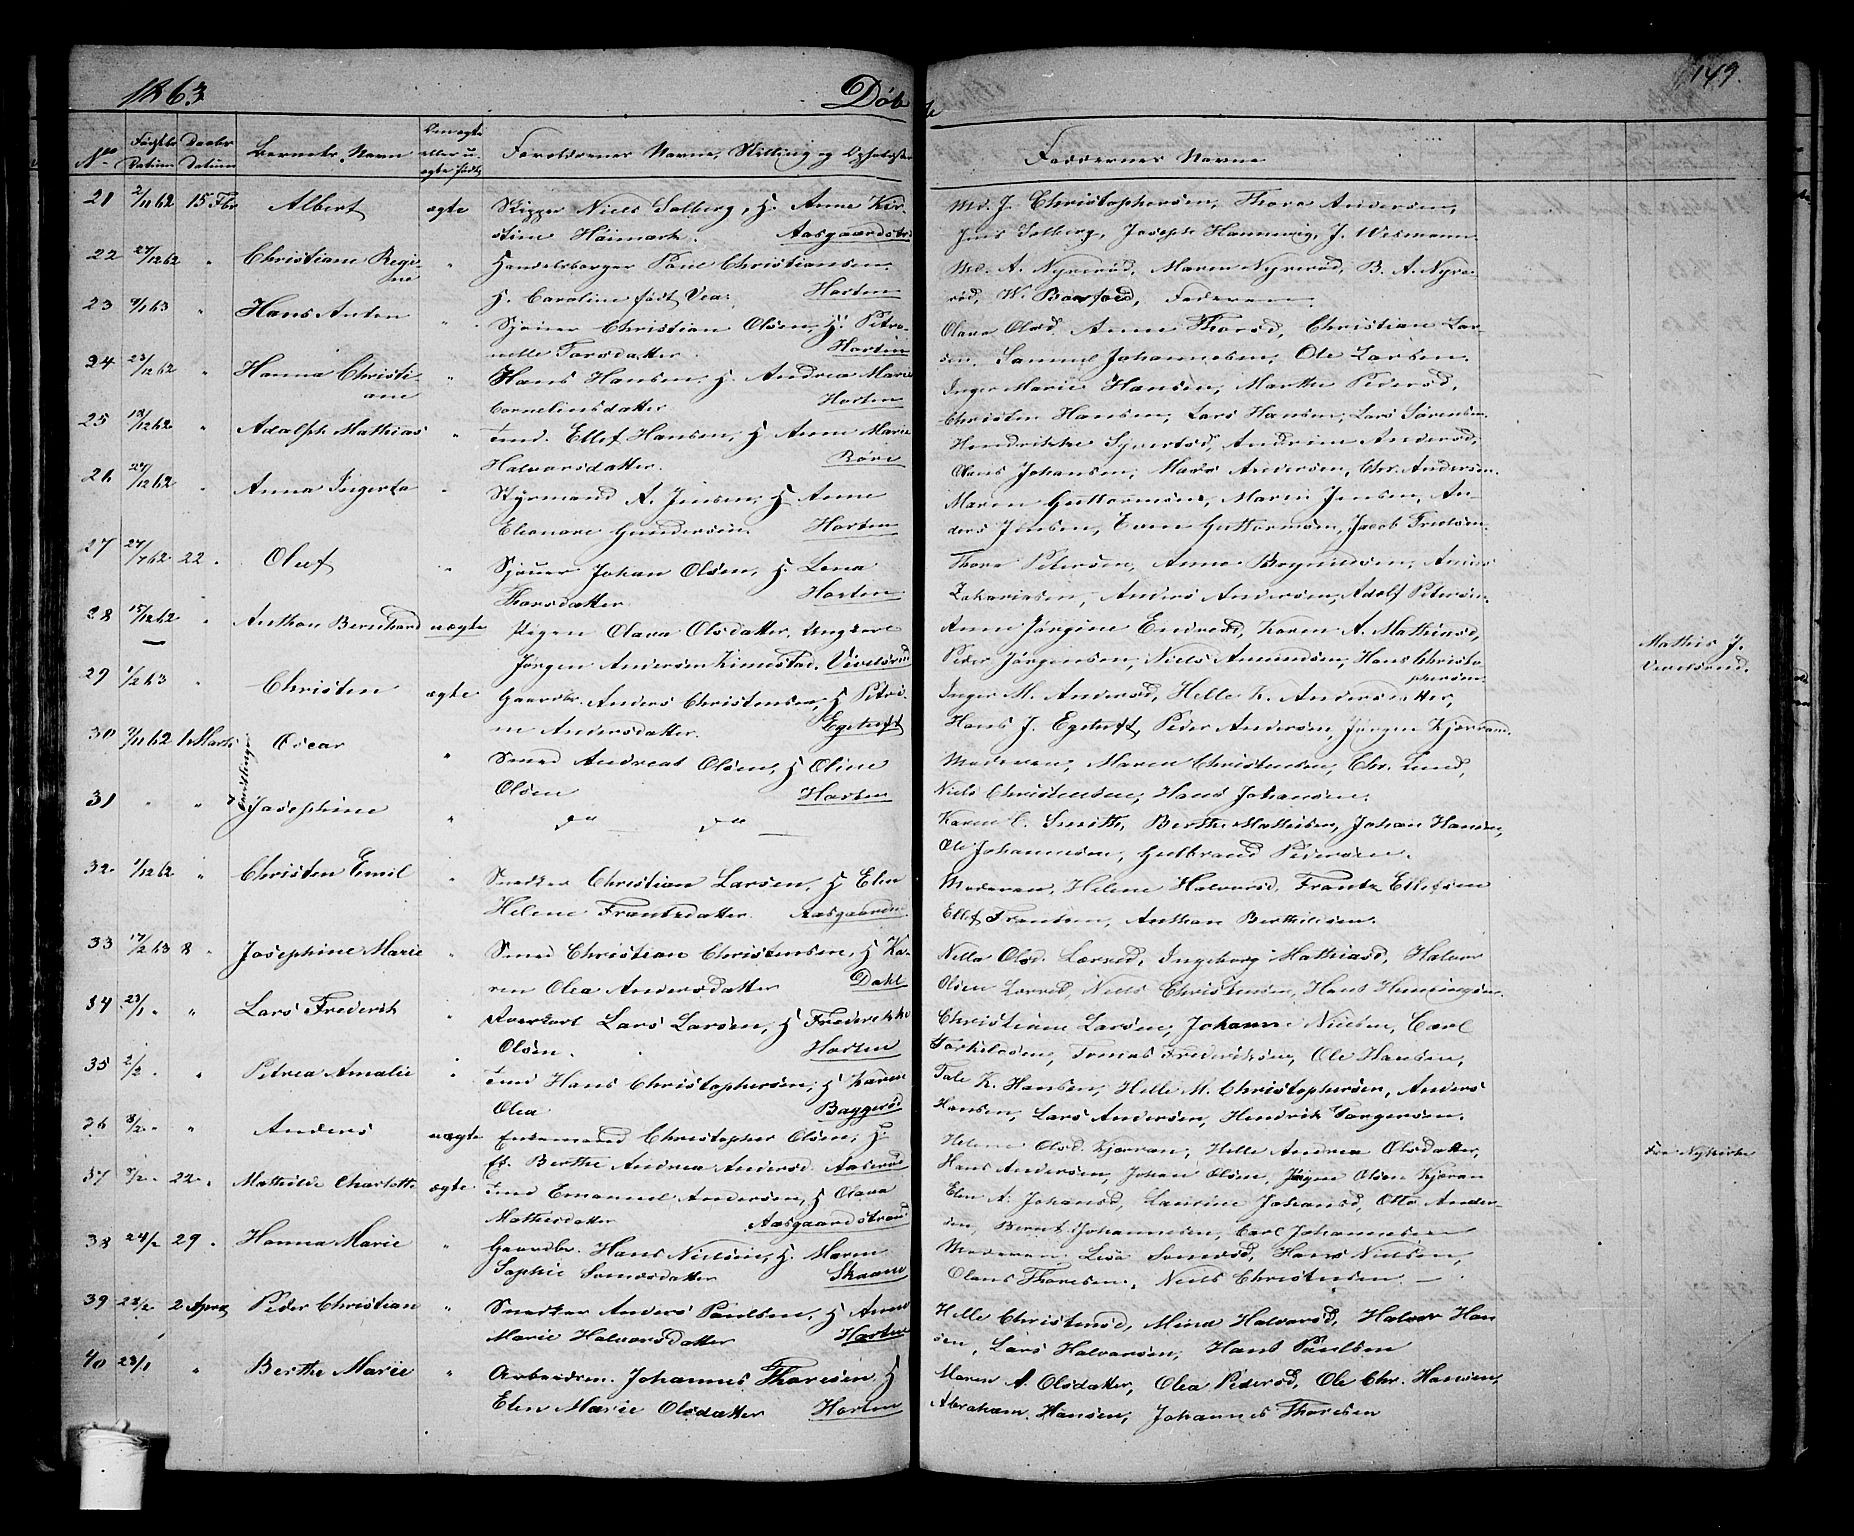 1863
Døbte
149.
No
Fødsels Datum
Daabs Datum
Barnets Navn
ægte eller u-ægte født
Forældrenes Navne, Stilling og Opholdssted
Faddernes Navne
21 2/11 62 15 Fbr Albert ægte Skipper Niels Solberg, H. Anne Kir-
stine Heimark. Aasgaardstr
Md. J. Christophersen, Thora Andersen,
Jens Solberg, Joseph Hannevig, J. Wismann.
22 27/12 62 " Christiane Regi-
ne " Handelsborger Paul Christiansen.
H. Caroline født Vea. Horten
Md. A. Nyrerød, Maren Nyrerød, B. A. Nyre-
rød, W. Faderen.
23 9/1 63 " Hans Anton " Sjøuer Christian Olsen, H. Petro-
nelle Torsdatter. Horten
Olava Olsd. Anne Thorsd, Christian Lar-
sen. Samuel Johannesen, Ole Larsen.
24 23/12 62 " Hanna Christi-
ane " Hans Hansen, H. Andrea Marie
Corneliusdatter Horten
Inger Marie Hansen, Marthe Pedersd,
Christen Hansen, Lars Hansen, Lars Sørensen.
25 18/12 62 " Adolph Mathias " Tmd. Ellef Hansen, H Anne Marie
Halvorsdatter. Røre
Hendrikke Syvertsd, Andrine Andersd,
Olaus Johansen, Mads Andersen, Chr. Andersen.
26 27/12 62 " Anna Ingerta " Styrmand A. Jensen, H Anne
Eleonore Gundersen Horten
Maren Guttormsen, Maria Jensen, An-
ders Jensen, Even Guttormsen, Jacob
27 27/7 62 22 " Oluf " Sjøuer Johan Olsen, H. Lena
Thorsdatter. Horten
Thora Petersen, Anne
Zachariasen, Anders Andersen, Adolf Petersen.
28 15/12 62 " Anthon Bernhard uægte Pigen Olava Olsdatter. Ungkarl
Jørgen Andersen Kimestad. Vivelsrud
Anne Jørgine Endresd, Karen A. Mathiasd,
Peder Jørgensen, Niels Amundsen, Hans Christo-
phersen.
Mathis J.
Vivelsrud.
29 1/2 63 " Christen ægte Gaardbr. Anders Christensen, H Petri-
ne Andersdatter. Egetuft
Inger M. Andersd, Helle K. Andersdatter,
Hans J. Egetuft, Peder Andersen, Jørgen Kjørran.
30 7/11 62 1 Marts Oscar " Smed Andreas Olsen, H Oline
Olsen Horten
Moderen, Maren Christensen, Chr. Lund,
Niels Christensen, Hans Johansen.
Tvillinger
31 " " Josephine " do do
Karen C. Smith, Berthe Mathisen, Johan Hansen,
Ole Johannesen, Gulbrand Pedersen.
32 1/12 62 " Christen Emil " Snedker Christian Larsen, H Elen
Helene Frantzdatter. Aasgaardst
Moderen, Helene Halvorsd, Frantz Ellefsen
Ellef Frantsen, Anthon Berthilsen.
33 17/2 63 8 " Josephine Marie " Smed Christian Christensen, H Ka-
ren Olea Andersdatter Dahl
Nella Olsd. Ingeborg Mathiasd, Halvor
Olsen Niels Christensen, Hans Henningsen.
34 23/1 " " Lars Frederik " Lars Larsen, H Frederikke
Olsen. Horten
Christiane Larsen, Johanne Nielsen, Carl
Torkildsen, Tomas Frederiksen, Ole Hansen,
35 2/2 " Petrea Amalie " Tmd Hans Christophersen, H Karen
Olea Baggerød
Tale K. Hansen, Helle M. Christophersen, Anders
Hansen, Lars Andersen, Hendrik Torgersen.
36 8/2 " " Anders uægte Enkemand Christopher Olsen, H.
ft. Berthe Andrea Andersd. Aaserød
Helene Olsd Kjørran, Helle Andrea Olsdatter,
Hans Andersen, Johan Olsen, Jørgen Olsen Kjøran
Fra Nykirke
37 8/2 " 22 " Mathilde Charlotte ægte Tmd Emanuel Andersen, H Olava
Mathisdatter Aasgaardstrand
Elen A. Johansd, Laurine Johansd, Otto Ander-
sen, Bernt Johannesen, Carl Johannesen
38 24/2 29 " Hanna Marie " Gaardbr. Hans Nielsen, H. Maren
Sophie Hansdatter Skaane
Moderen, Lisa Hans Nielsen,
Olaus Thoresen, Niels Christensen
39 22/2 2 April Peder Christian " Snedker Anders Paulsen, H Anne
Marie Halvorsdatter Horten
Helle Christensd, Mina Halvorsd, Halvor Han-
sen, Lars Halvorsen, Hans Paulsen
40 23/1 " Berthe Marie " Arbeidsm. Johannes Thoresen H
Elen Marie Olsdatter Horten
Maren A. Olsdatter, Olea Pedersd, Ole Chr. Hansen,
Abraham Hansen, Johannes Thoresen